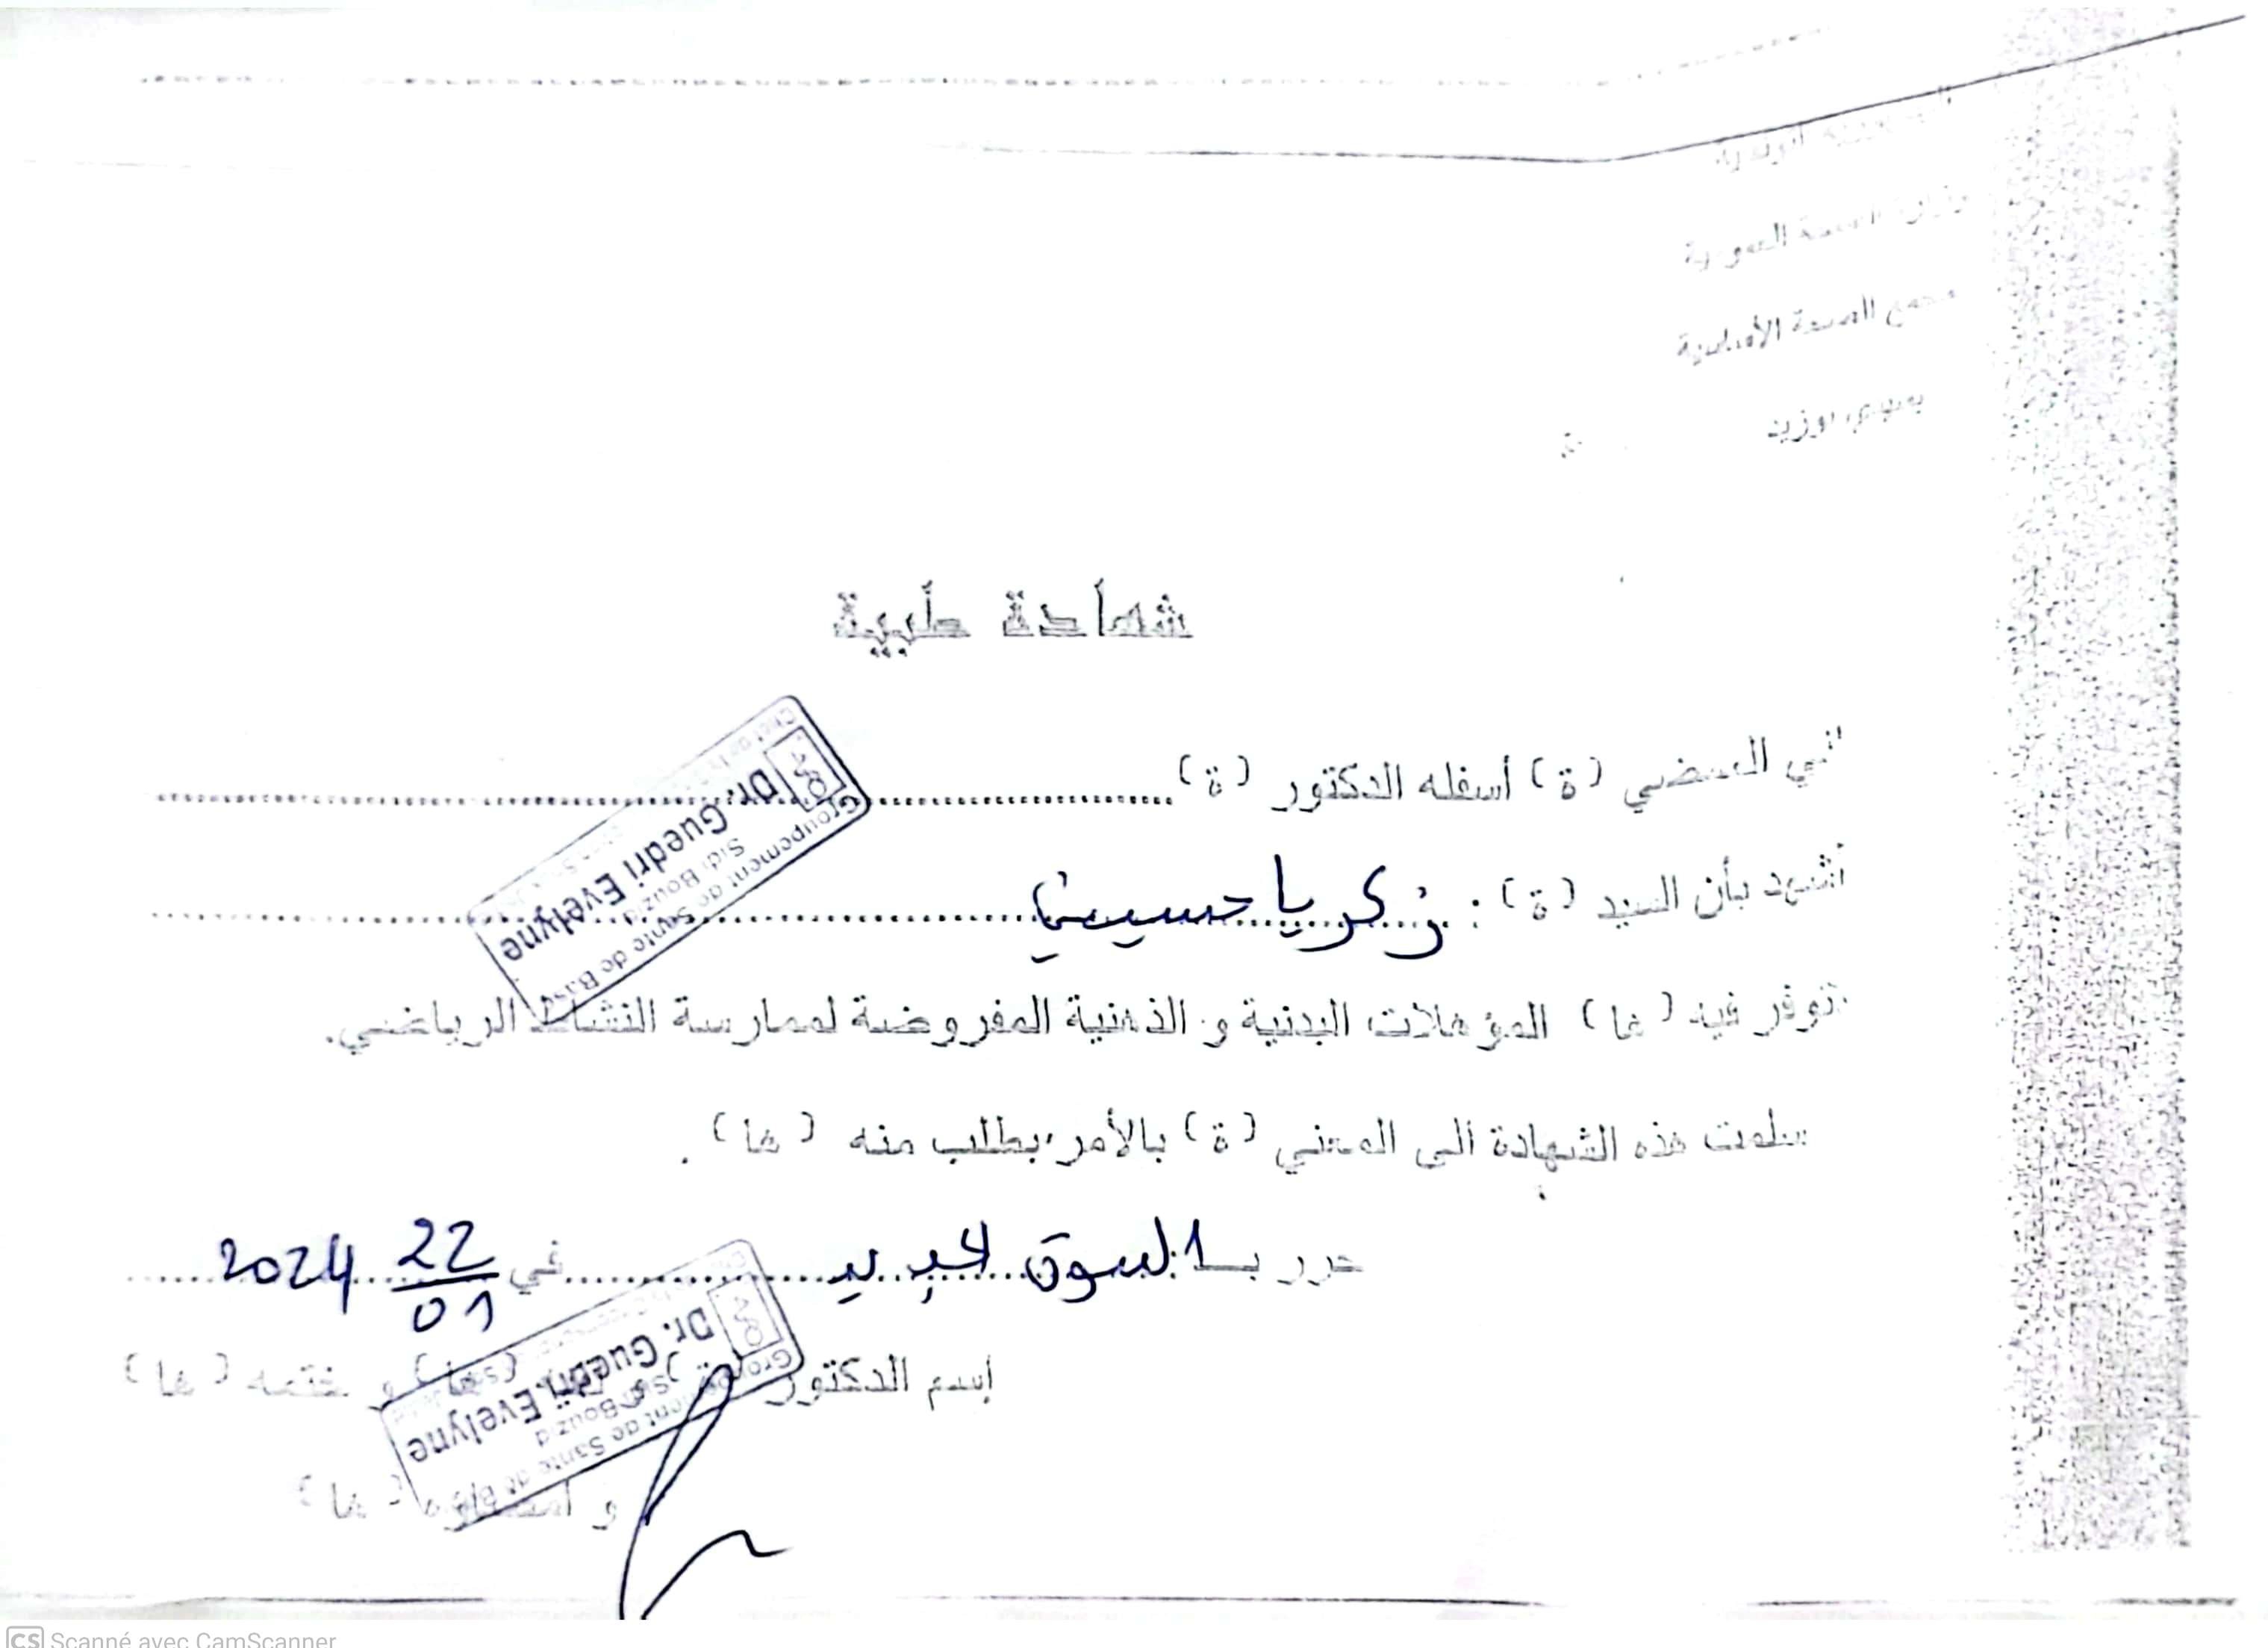 وزارة الصحة العمومية
مجمع الصحة الأساسية
بسيدي بوزيد
شهادة طبية
إني الممضي (ة) أسفله الدكتور (ة)
Groupement de Sante de Base
Sidi Bouzid
Dr. Guedri Evelyne
أشهد بأن السيد (ة) : زكريا حسيني
تتوفر فيه (ها) المؤهلات البدنية و الذهنية المفروضة لممارسة النشاط الرياضي.
سلمت هذه الشهادة الى المعني (ة) بالأمر بطلب منه (ها).
حرر بـالسوق الجديد في 22/01 2024
إسم الدكتور (ة) و ختمه (ها)
Groupement de Sante de Base
Sidi Bouzid
Dr. Guedri Evelyne
و إمضاؤه (ها)
CS Scanné avec CamScanner